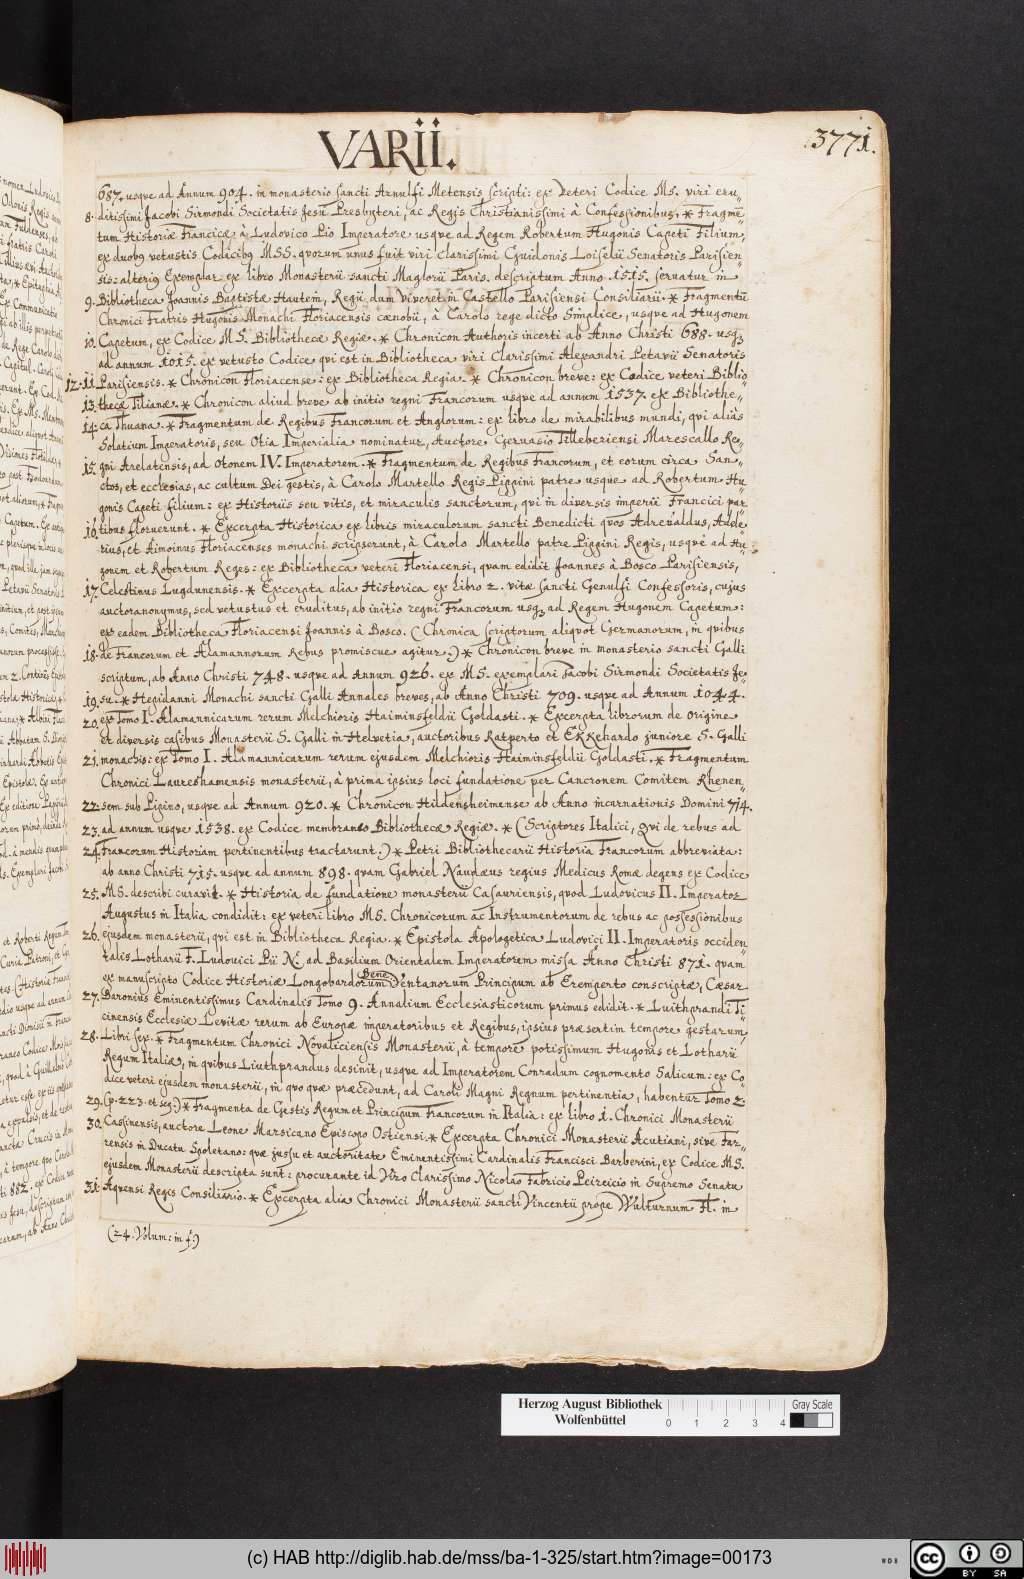 VARII.
3771.
687. usque ad Annum 904. in monasterio sancti Arnulfi Metensis scripti: ex Veteri Codice Ms. viri eru„
8. ditissimi Jacobi Sirmondi Societatis Jesu Presbyteri, ac Regis Christianissimi à Confessionibus. * Fragme„
tum Historiæ Francicæ à Ludovico Pio Imperatore usque ad Regem Robertum Hugonis Capeti Filium,
ex duobus vetustis Codicibus MSS. quorum unus fuit viri clarissimi Guidonis Loiselii Senatoris Parisien„
sis: alterius Exemplar ex libro Monasterii sancti Maglorii Paris. descriptum Anno 1515. servatur in
9. Bibliotheca Joannis Baptistæ Hautem, Regii dum viveret in Castello Parisiensi Consiliarii. * Fragmentū
Chronici Fratris Hugonis Monachi Floriacensis cœnobii, à Carolo rege dicto Simplice, usque ad Hugonem
10. Capetum, ex Codice MS. Bibliothecæ Regiæ. * Chronicon Authoris incerti ab Anno Christi 688. usq3
ad annum 1015. ex vetusto Codice qui est in Bibliotheca viri Clarissimi Alexandri Petavii Senatoris
12. 11. Parisiensis. * Chronicon Floriacense: ex Bibliotheca Regia. * Chronicon breve: ex Codice veteri Biblio„
13. thecæ Tilianæ. * Chronicon aliud breve ab initio regni Francorum usque ad annum 1537. ex Bibliothe„
14. ca Thuana. * Fragmentum de Regibus Francorum et Anglorum: ex libro de mirabilibus mundi, qui aliàs
Solatium Imperatoris, seu Otia Imperialia nominatur, Auctore Gervasio Tilleberiensi Marescallo Re„
15. gni Arelatensis, ad Otonem IV. Imperatorem. * Fragmentum de Regibus Francorum, et eorum circa San„
ctos, et ecclesias, ac cultum Dei gestis, à Carolo Martello Regis Pippini patre usque ad Robertum Hu
gonis Capeti filium: ex Historiis seu vitis, et miraculis sanctorum, qui in diversis imperii Francici par
16. tibus floruerunt. * Excerpta Historica ex libris miraculorum sancti Benedicti quos Adrevaldus, Adele„
rius, et Aimoinus Floriacenses monachi scripserunt, à Carolo Martello patre Pippini Regis, usque ad Hu„
gonem et Robertum Reges: ex Bibliotheca veteri Floriacensi, quam edidit Joannes à Bosco Parisiensis,
17. Celestinus Lugdunensis. * Excerpta alia Historica ex libro 2. vitæ sancti Genulfi Confessoris, cujus
auctor anonymus, sed vetustus et eruditus, ab initio regni Francorum usq3 ad Regem Hugonem Capetum:
ex eadem Bibliotheca Floriacensi Joannis à Bosco. (Chronica scriptorum aliquot Germanorum, in quibus
18. de Francorum et Alamannorum Rebus promiscue agitur.) * Chronicon breve in monasterio sancti Galli
scriptum, ab Anno Christi 748. usque ad Annum 926. ex MS. exemplari Jacobi Sirmondi Societatis Je„
19. su. * Hepidanni Monachi sancti Galli Annales breves, ab Anno Christi 709. usque ad Annum 1044.
20. ex Tomo I. Alamannicarum rerum Melchioris Haiminsfeldii Goldasti. * Excerpta librorum de Origine
et diversis casibus Monasterii S. Galli in Helvetia, auctoribus Ratperto et Ekkehardo juniore S. Galli
21. monachis: ex Tomo I. Alamannicarum rerum ejusdem Melchioris Haiminsfeldii Goldasti. * Fragmentum
Chronici Laureshamensis monasterii, à prima ipsius loci fundatione per Cancronem Comitem Rhenen„
22. sem sub Pipino, usque ad Annum 920. * Chronicon Hildensheimense ab Anno incarnationis Domini 714.
23. ad annum usque 1538. ex Codice membraneo Bibliothecæ Regiæ. * (Scriptores Italici, Qvi de rebus ad
24. Francorum Historiam pertinentibus tractarunt.) * Petri Bibliothecarii Historia Francorum abbreviata:
ab anno Christi 715. usque ad annum 898. quam Gabriel Naudæus regius Medicus Romæ degens ex Codice
25. MS. describi curavit. * Historia de fundatione monasterii Casauriensis, quod Ludovicus II. Imperator
Augustus in Italia condidit: ex veteri libro MS. Chronicorum ac Instrumentorum de rebus ac possessionibus
26. ejusdem monasterii, qui est in Bibliotheca Regia. * Epistola Apologetica Ludovici II. Imperatoris occiden„
talis Lotharii F. Ludovici Pii N. ad Basilium Orientalem Imperatorem missa Anno Christi 871. quam
Bene
ex manuscripto Codice Historiæ Longobardorum Ventanorum Principum ab Erempertо conscriptæ, Cæsar
27. Baronius Eminentissimus Cardinalis Tomo 9. Annalium Ecclesiasticorum primus edidit. * Luithprandi Ti„
cinensis Ecclesiæ Levitæ rerum ab Europæ imperatoribus et Regibus, ipsius præsertim tempore gestarum,
28. Libri sex. * Fragmentum Chronici Novaliciensis Monasterii, à tempore potissimum Hugonis et Lotharii
Regum Italiæ, in quibus Liuthprandus desinit, usque ad Imperatorem Conradum cognomento Salicum: ex Co„
dice veteri ejusdem monasterii, in quo quæ præcedunt, ad Caroli Magni Regnum pertinentia, habentur Tomo 2.
29. (p. 223. et seq.) * Fragmenta de Gestis Regum et Principum Francorum in Italia: ex libro 1. Chronici Monasterii
30. Cassinensis, auctore Leone Marsicano Episcopo Ostiensi. * Excerpta Chronici Monasterii Acutiani, sive Far„
rensis in Ducatu Spoletano: quæ jussu et auctoritate Eminentissimi Cardinalis Francisci Barberini, ex Codice MS.
ejusdem Monasterii descripta sunt: procurante id Viro Clarissimo Nicolao Fabricio Peireicio in Supremo Senatu
31. Aquensi Regis Consiliario. * Excerpta alia Chronici Monasterii sancti Vincentii prope Wulturnum Fl. in
(24. Volum: in f.)
Herzog August Bibliothek
Wolfenbüttel
0 1 2 3 4
Gray Scale
(c) HAB http://diglib.hab.de/mss/ba-1-325/start.htm?image=00173
WDB
cc BY SA